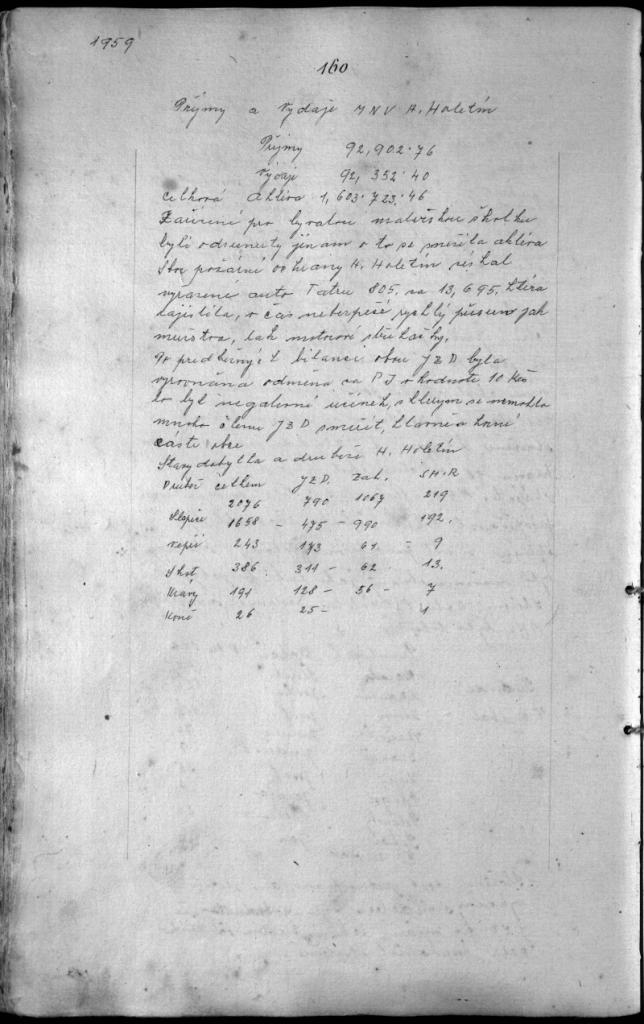 1959
160
Příjmy a Vydaje MNV H. Holetín
Příjmy 92,902·76
Výdaje 92,352·40
celková aktiva 1,603·723·46
Zařízení pro bývalou mateřskou školku
byli odsunuty jinam o to se snížila aktiva
Sbor požární ochrany H. Holetín získal
vyrazené auto Tatru 805. za 13,695. která
zajistila, v čas nebezpečí rychlý přesun jak
mužstva, tak motorové stříkačky.
Po předběžný bilanci obou JZD byla
vyrovnána odměna za PJ v hodnotě 10 Kčs
to byl negativní účinek, s kterým se nemohlo
mnoho členů JZD smířit, hlavně v horní
části obce
Stavy dobytka a drubeže H. Holetín
Drubež celkem JZD. Zah. SH.R
2076 790 1067 219
Slepice 1658 – 475 – 990 192.
vepři 243 173 61 – 9
Skot 386. 311 – 62 13.
Kravy 191 128 – 56 – 7
Koně 26 25 – 1